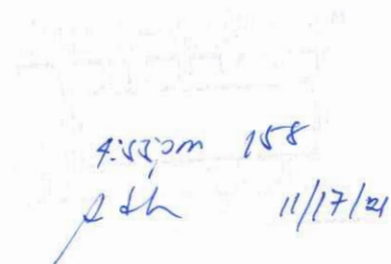 4:55pm 158
11/17/21